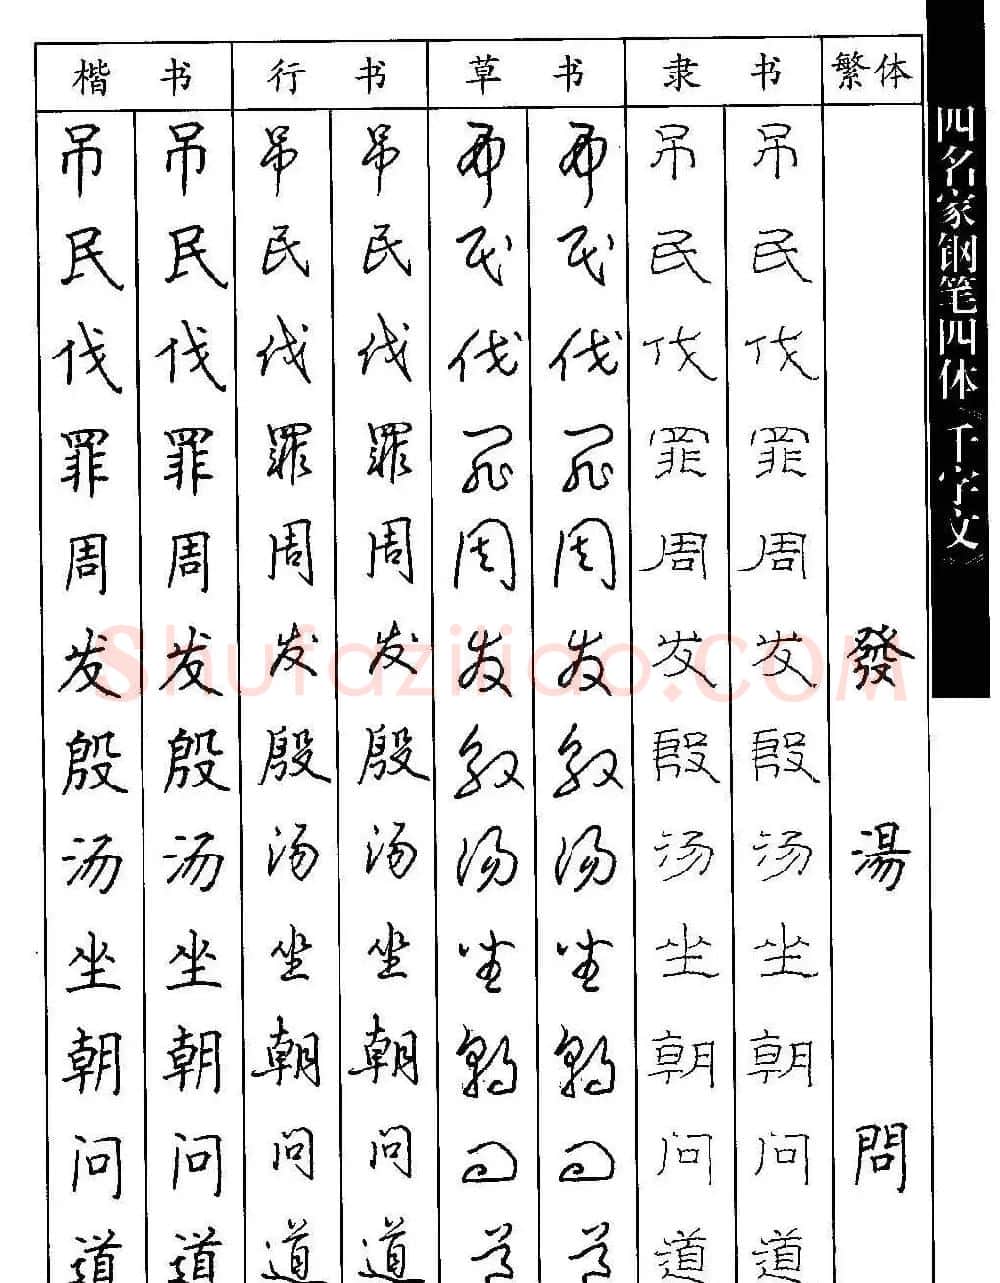 楷书 行书 草书 隶书 繁体
吊 吊 吊 吊 吊 吊 吊 吊
民 民 民 民 民 民 民 民
伐 伐 伐 伐 伐 伐 伐 伐
罪 罪 罪 罪 罪 罪 罪 罪
周 周 周 周 周 周 周 周
发 发 发 发 发 发 发 发 發
殷 殷 殷 殷 殷 殷 殷 殷
汤 汤 汤 汤 汤 汤 汤 汤 湯
坐 坐 坐 坐 坐 坐 坐 坐
朝 朝 朝 朝 朝 朝 朝 朝
问 问 问 问 问 问 问 问 問
道 道 道 道 道 道 道 道
四名家钢笔四体《千字文》
Shufaziliao.com